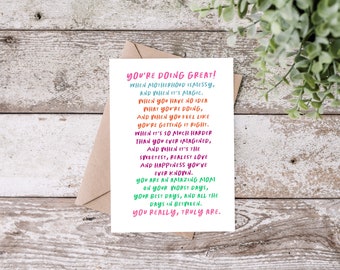 YOU'RE DOING GREAT!
WHEN MOTHERHOOD IS MESSY,
AND WHEN IT'S MAGIC.
WHEN YOU HAVE NO IDEA
WHAT YOU'RE DOING,
AND WHEN YOU FEEL LIKE
YOU'RE GETTING IT RIGHT.
WHEN IT'S SO MUCH HARDER
THAN YOU EVER IMAGINED,
AND WHEN IT'S THE
SWEETEST, REALEST LOVE
AND HAPPINESS YOU'VE
EVER KNOWN.
YOU ARE AN AMAZING MOM
ON YOUR WORST DAYS,
YOUR BEST DAYS, AND ALL THE
DAYS IN BETWEEN.
YOU REALLY, TRULY ARE.